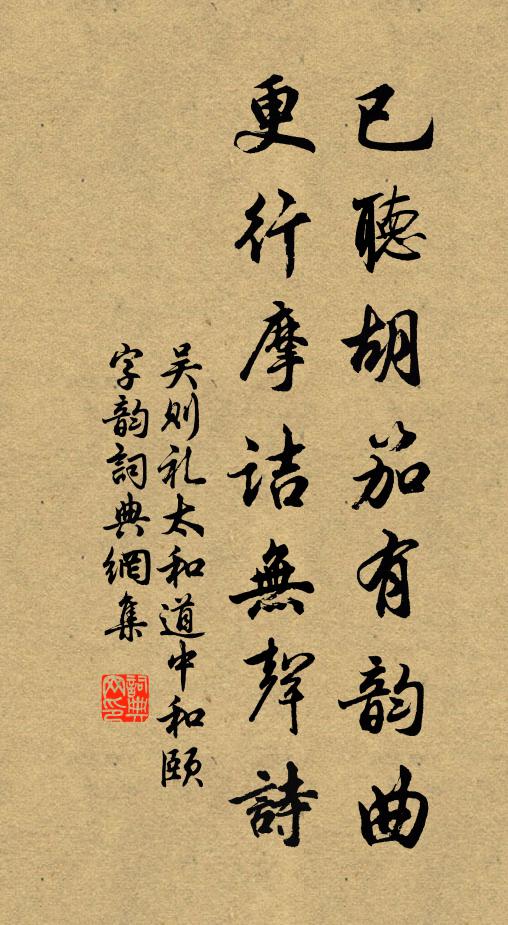 已聽胡笳有韵曲
更行摩詰無聲詩
吴则礼太和道中和頤
字韵詞典網集
詞典網印